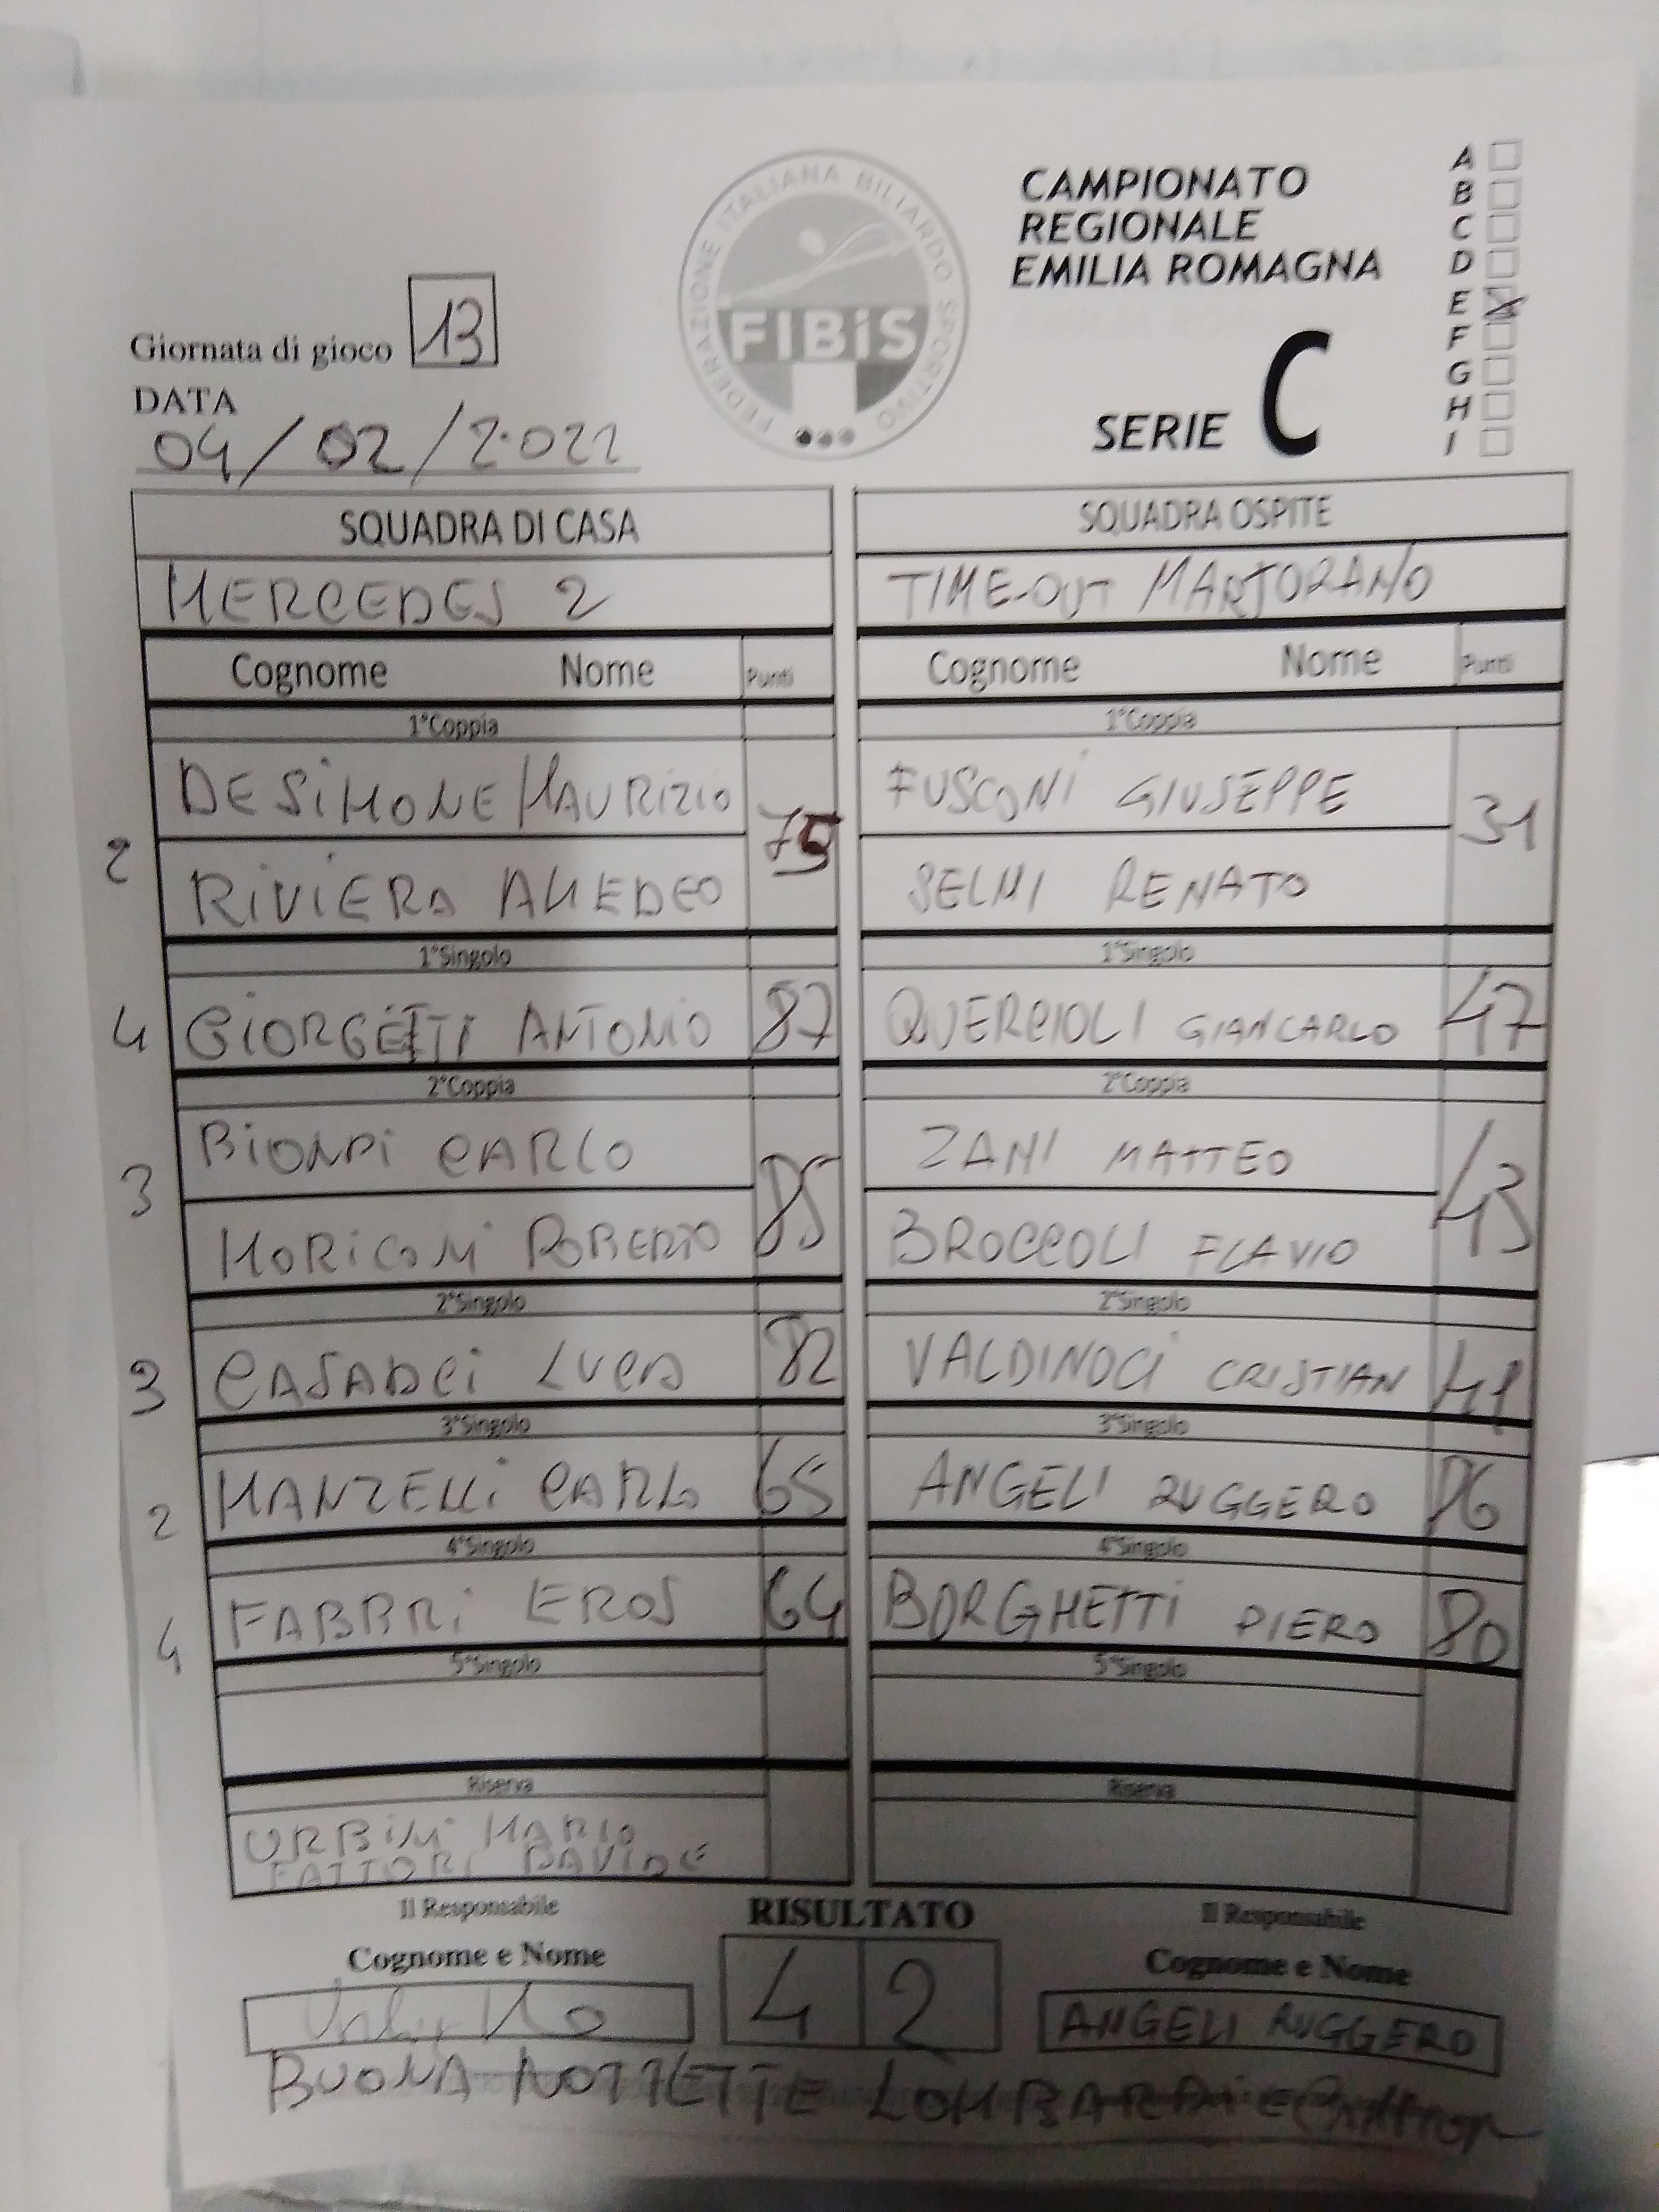 FEDERAZIONE ITALIANA BILIARDO SPORTIVO
FIBiS
CAMPIONATO
REGIONALE
EMILIA ROMAGNA
SERIE C
A
B
C
D
E
F
G
H
I
Giornata di gioco 13
DATA
04/02/2022
SQUADRA DI CASA SQUADRA OSPITE
MERCEDES 2 TIME-OUT MARTORANO
Cognome Nome Punti Cognome Nome Punti
1°Coppia 1°Coppia
DE SiMONE MAURIZIO 75 FUSCONI GIUSEPPE 31
2 RIVIERA AMEDEO SELMI RENATO
1°Singolo 1°Singolo
4 GIORGETTI ANTONIO 87 QUERCIOLI GIANCARLO 47
2°Coppia 2°Coppia
BIONDI CARLO 85 ZANI MATTEO 43
3 MORICONI ROBERTO BROCCOLI FLAVIO
2°Singolo 2°Singolo
3 CASADEI LUCA 82 VALDINOCI CRISTIAN 41
3°Singolo 3°Singolo
2 MANZELLI CARLO 65 ANGELI RUGGERO 86
4°Singolo 4°Singolo
4 FABBRI EROS 64 BORGHETTI PIERO 80
5°Singolo 5°Singolo
Riserva Riserva
URBINI MARIO
FATTORI DAVIDE
Il Responsabile RISULTATO Il Responsabile
Cognome e Nome 4 2 Cognome e Nome
ANGELI RUGGERO
BUONA NOTTETTE LOMBARDI e